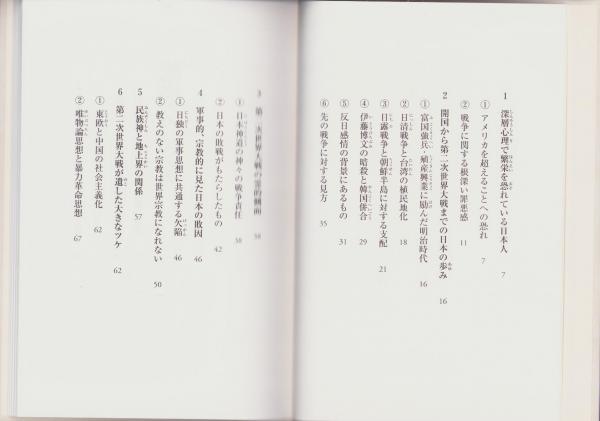 1 深層心理で繁栄を恐れている日本人 7
① アメリカを超えることへの恐れ 7
② 戦争に関する根深い罪悪感 11
2 開国から第二次世界大戦までの日本の歩み 16
① 富国強兵・殖産興業に励んだ明治時代 16
② 日清戦争と台湾の植民地化 18
③ 日露戦争と朝鮮半島に対する支配 21
④ 伊藤博文の暗殺と韓国併合 29
⑤ 反日感情の背景にあるもの 31
⑥ 先の戦争に対する見方 35
3 第二次世界大戦の霊的側面 38
① 日本神道の神々の戦争責任 38
② 日本の敗戦がもたらしたもの 42
4 軍事的、宗教的に見た日本の敗因 46
① 日独の軍事思想に共通する欠陥 46
② 教えのない宗教は世界宗教になれない 50
5 民族神と地上界の関係 57
6 第二次世界大戦が遺した大きなツケ 62
① 東欧と中国の社会主義化 62
② 唯物論思想と暴力革命思想 67